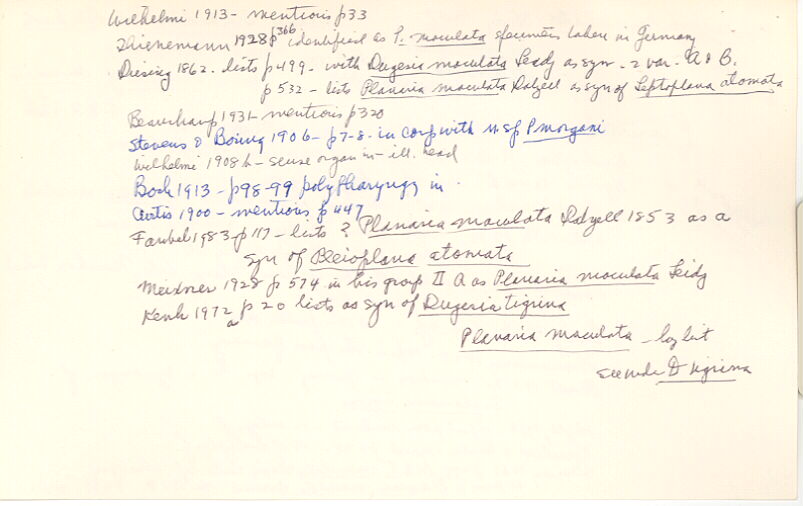 Wilhelmi 1913 - mentions p33
Thienemann 1928 p366 identified as P. maculata specimens taken in Germany
Diesing 1862. lists p499. with Dugesia maculata Leidy as syn - 2 var. A & B.
p 532 - lists Planaria maculata Dalyell as syn of Leptoplana atomata
Beauchamp 1931 - mentions p320
Stevens & Boring 1906 - p7-8. in comp with n. sp P. morgani
Wilhelmi 1908 b - sense organ in - ill. head
Bock 1913 - p98-99 polypharyngy in.
Curtis 1900 - mentions p 447
Faubel 1983 - p 117 - lists ? Planaria maculata Dalyell 1853 as a
syn of Pleioplana atomata
Meixner 1928 p 574 in his group II A as Planaria maculata Leidy
Kenk 1972 a p 20 lists as syn of Dugesia tigrina
Planaria maculata -
see under D tigrina